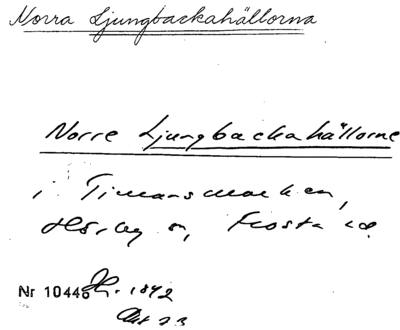 Norra Ljungbackahällorna
Norre Ljungbackahällorne
i Timansmarken,
Hörby sn, Frosta hd.
Nr 10446 1892